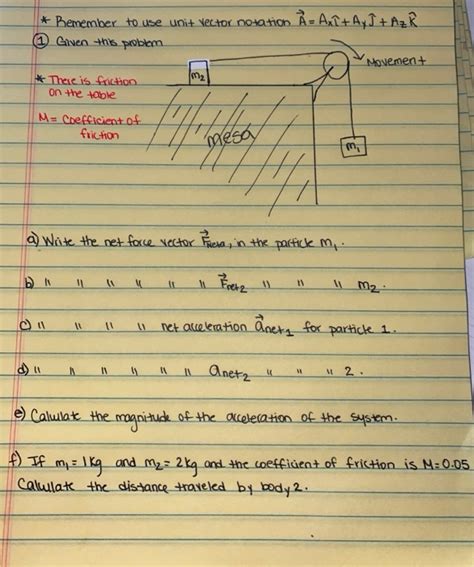 * Remember to use unit vector notation A⃗ = Axî + Ayĵ + AzK̂
① Given this problem
* There is friction on the table
M = Coefficient of friction
m₂
Movement
mesa
m₁
a) Write the net force vector in the particle m₁.
b) " " " " " " F⃗net₂ " " " m₂.
c) " " " " net acceleration a⃗net₁ for particle 1.
d) " " " " " " anet₂ " " " 2.
e) Calulate the magnitude of the acceleration of the system.
f) If m₁ = 1kg and m₂ = 2kg and the coefficient of friction is M=0.05
Calculate the distance traveled by body 2.